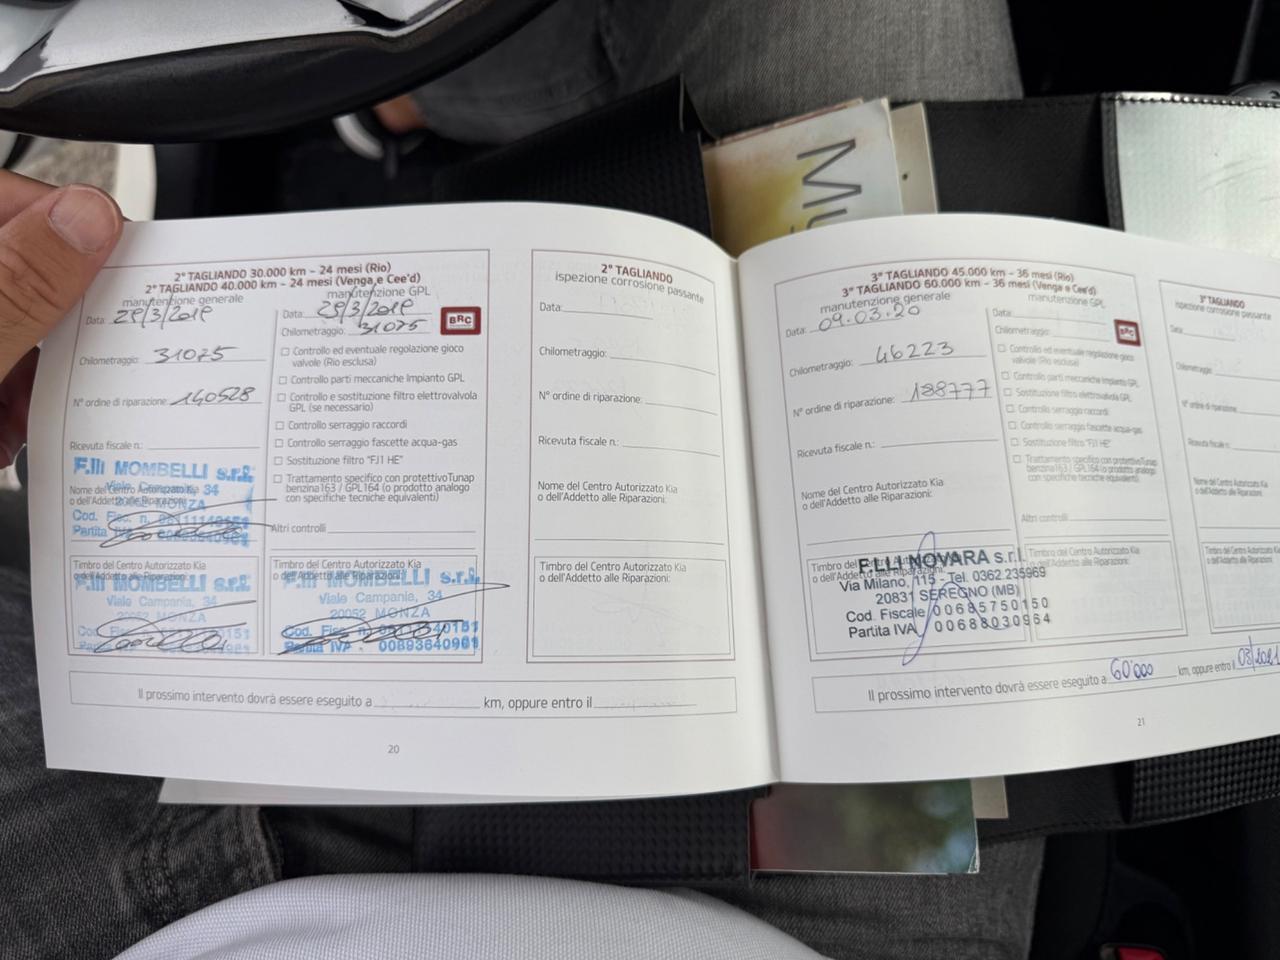 MU
2° TAGLIANDO 30.000 km – 24 mesi (Rio)
2° TAGLIANDO 40.000 km – 24 mesi (Venga e Cee'd)
manutenzione generale
Data: 29/3/2019
Chilometraggio: 31075
N° ordine di riparazione: 140528
Ricevuta fiscale n.:
Nome del Centro Autorizzato Kia
o dell'Addetto alle Riparazioni:
F.lli MOMBELLI s.r.l.
Viale Campania, 34
20052 MONZA
Cod. Fisc. n.
Partita IVA
Timbro del Centro Autorizzato Kia
o dell'Addetto alle Riparazioni:
F.lli MOMBELLI s.r.l.
Viale Campania, 34
20052 MONZA
manutenzione GPL
Data: 29/3/2019
Chilometraggio: 31075
BRC
Controllo ed eventuale regolazione gioco
valvole (Rio esclusa)
Controllo parti meccaniche Impianto GPL
Controllo e sostituzione filtro elettrovalvola
GPL (se necessario)
Controllo serraggio raccordi
Controllo serraggio fascette acqua-gas
Sostituzione filtro "FJ1 HE"
Trattamento specifico con protettivo Tunap
benzina 163 / GPL 164 (o prodotto analogo
con specifiche tecniche equivalenti)
Altri controlli
Timbro del Centro Autorizzato Kia
o dell'Addetto alle Riparazioni:
F.lli MOMBELLI s.r.l.
Viale Campania, 34
20052 MONZA
Cod. Fisc. n.
Partita IVA - 00893640961
2° TAGLIANDO
ispezione corrosione passante
Data:
Chilometraggio:
N° ordine di riparazione:
Ricevuta fiscale n.:
Nome del Centro Autorizzato Kia
o dell'Addetto alle Riparazioni:
Timbro del Centro Autorizzato Kia
o dell'Addetto alle Riparazioni:
Il prossimo intervento dovrà essere eseguito a km, oppure entro il
20
3° TAGLIANDO 45.000 km – 36 mesi (Rio)
3° TAGLIANDO 60.000 km – 36 mesi (Venga e Cee'd)
manutenzione generale
Data: 09.03.20
Chilometraggio: 46223
N° ordine di riparazione: 188777
Ricevuta fiscale n.:
Nome del Centro Autorizzato Kia
o dell'Addetto alle Riparazioni:
Timbro del Centro Autorizzato Kia
o dell'Addetto alle Riparazioni:
F.LLI NOVARA s.r.l.
Via Milano, 115 - Tel. 0362.235969
20831 SEREGNO (MB)
Cod. Fiscale 00685750150
Partita IVA 00688030964
manutenzione GPL
Data:
Chilometraggio:
BRC
Controllo ed eventuale regolazione gioco
valvole (Rio esclusa)
Controllo parti meccaniche Impianto GPL
Sostituzione filtro elettrovalvola GPL
Controllo serraggio raccordi
Controllo serraggio fascette acqua-gas
Sostituzione filtro "FJ1 HE"
Trattamento specifico con protettivo Tunap
benzina 163 / GPL 164 (o prodotto analogo
con specifiche tecniche equivalenti)
Altri controlli
Timbro del Centro Autorizzato Kia
o dell'Addetto alle Riparazioni:
3° TAGLIANDO
ispezione corrosione passante
Data:
Chilometraggio:
N° ordine di riparazione:
Ricevuta fiscale n.:
Nome del Centro Autorizzato
o dell'Addetto alle Riparazioni:
Timbro del Centro Autorizzato
o dell'Addetto alle Riparazioni:
Il prossimo intervento dovrà essere eseguito a 60'000 km, oppure entro il 03/2021
21